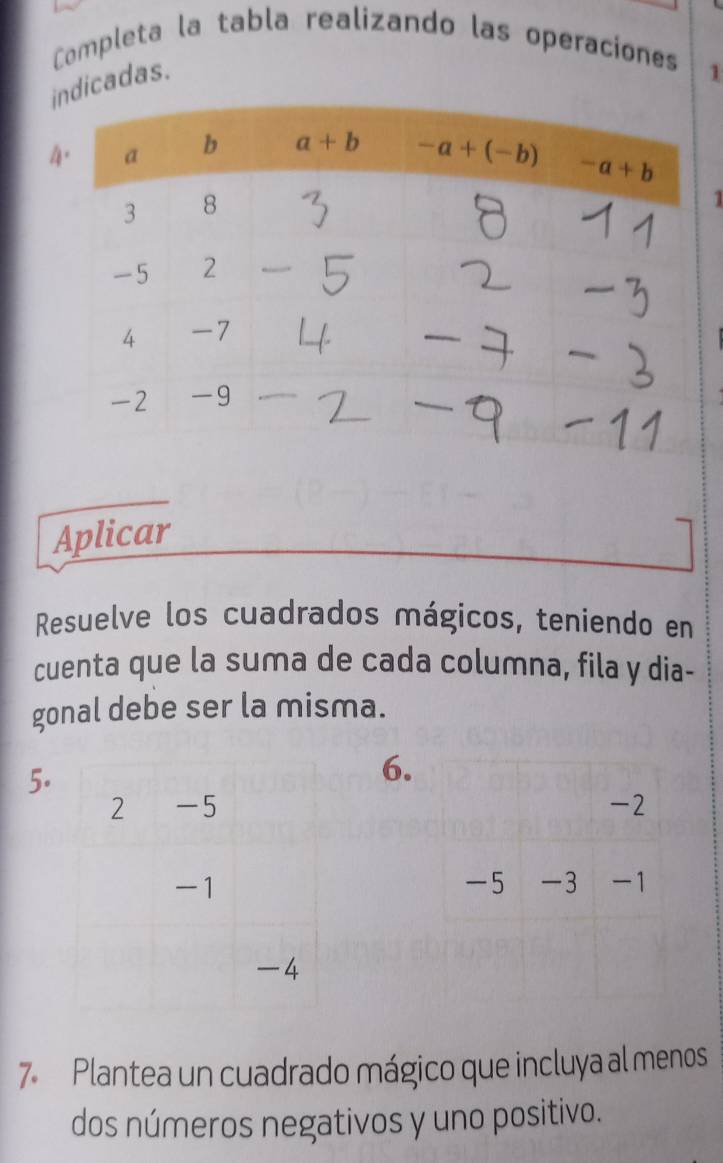 Completa la tabla realizando las operaciones
indicadas.
1
4. a b a + b -a + (-b) -a + b
3 8 3 8 11
1
-5 2 -5 2 -3
4 -7 4 -7 -3
-2 -9 -2 -9 -11
Aplicar
Resuelve los cuadrados mágicos, teniendo en
cuenta que la suma de cada columna, fila y dia-
gonal debe ser la misma.
5. 6.
2 -5 -2
-1 -5 -3 -1
-4
7. Plantea un cuadrado mágico que incluya al menos
dos números negativos y uno positivo.